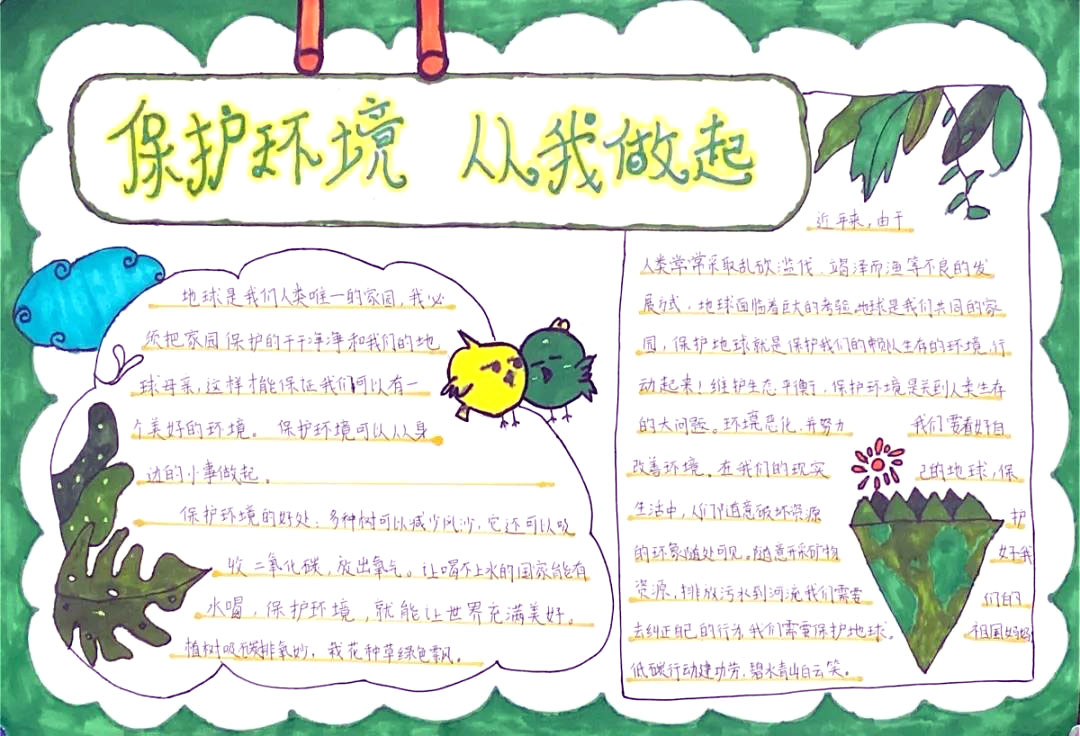 保护环境 从我做起
地球是我们人类唯一的家园,我必
须把家园保护的干干净净和我们的地
球母亲,这样才能保证我们可以有一
个美好的环境。保护环境可以从身
边的小事做起。
保护环境的好处:多种树可以减少风沙,它还可以吸
收二氧化碳,放出氧气。让喝不上水的国家能有
水喝,保护环境,就能让世界充满美好。
植树吸碳排氧妙,我花种草绿色飘。
近年来,由于
人类常常采取乱砍滥伐、竭泽而渔等不良的发
展方式,地球面临着巨大的考验。地球是我们共同的家
园,保护地球就是保护我们的赖以生存的环境,行
动起来!维护生态平衡,保护环境是关到人类生存
的大问题。环境恶化,并努力
改善环境。在我们的现实
生活中,人们随意破坏资源
的环象随处可见。随意开采矿物
资源,排放污水到河流我们需要
去纠正自己的行为,我们需要保护地球。
低碳行动建功劳,碧水青山白云笑。
我们要看好自
己的地球,保
护
好我
们的
祖国妈妈